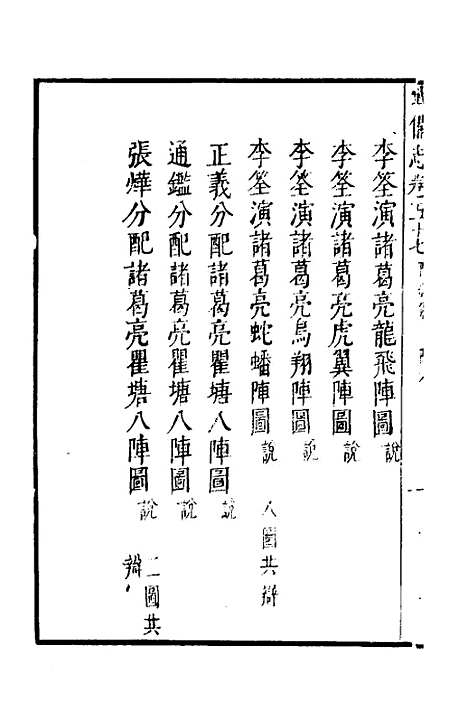 武備志卷五十七
李筌演諸葛亮龍飛陣圖說
李筌演諸葛亮虎翼陣圖說
李筌演諸葛亮鳥翔陣圖說
李筌演諸葛亮蛇蟠陣圖說 八圖共辯
正義分配諸葛亮瞿塘八陣圖說
通鑑分配諸葛亮瞿塘八陣圖說
張燁分配諸葛亮瞿塘八陣圖說 二圖共
辯